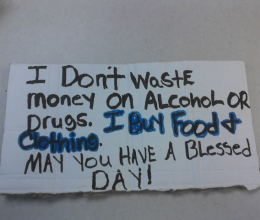 I Don't waste
money on Alcohol OR
Drugs. I Buy Food &
Clothing.
MAY YOU HAVE A Blessed
DAY!